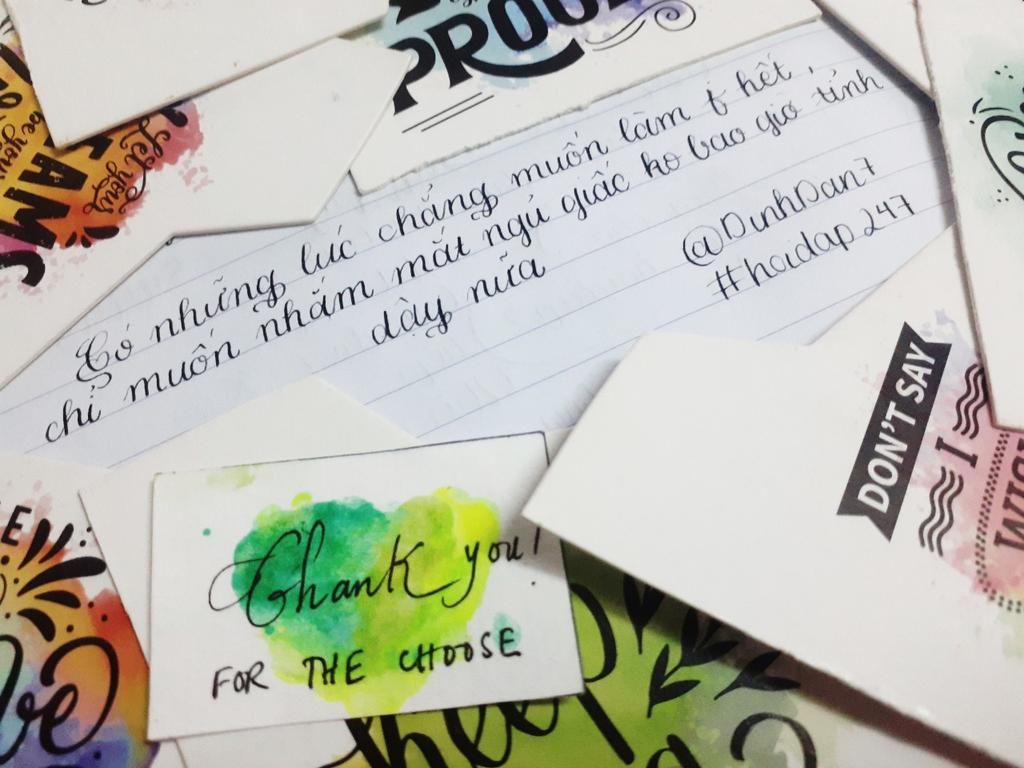 PROU
Let your
EAM
be your
Có những lúc chẳng muốn làm j hết,
chỉ muốn nhắm mắt ngủ giấc ko bao giờ tỉnh
dậy nữa
@DinhDan7
#hoidap247
DON'T SAY
I
WISH
Thank you!
FOR THE CHOOSE
keep